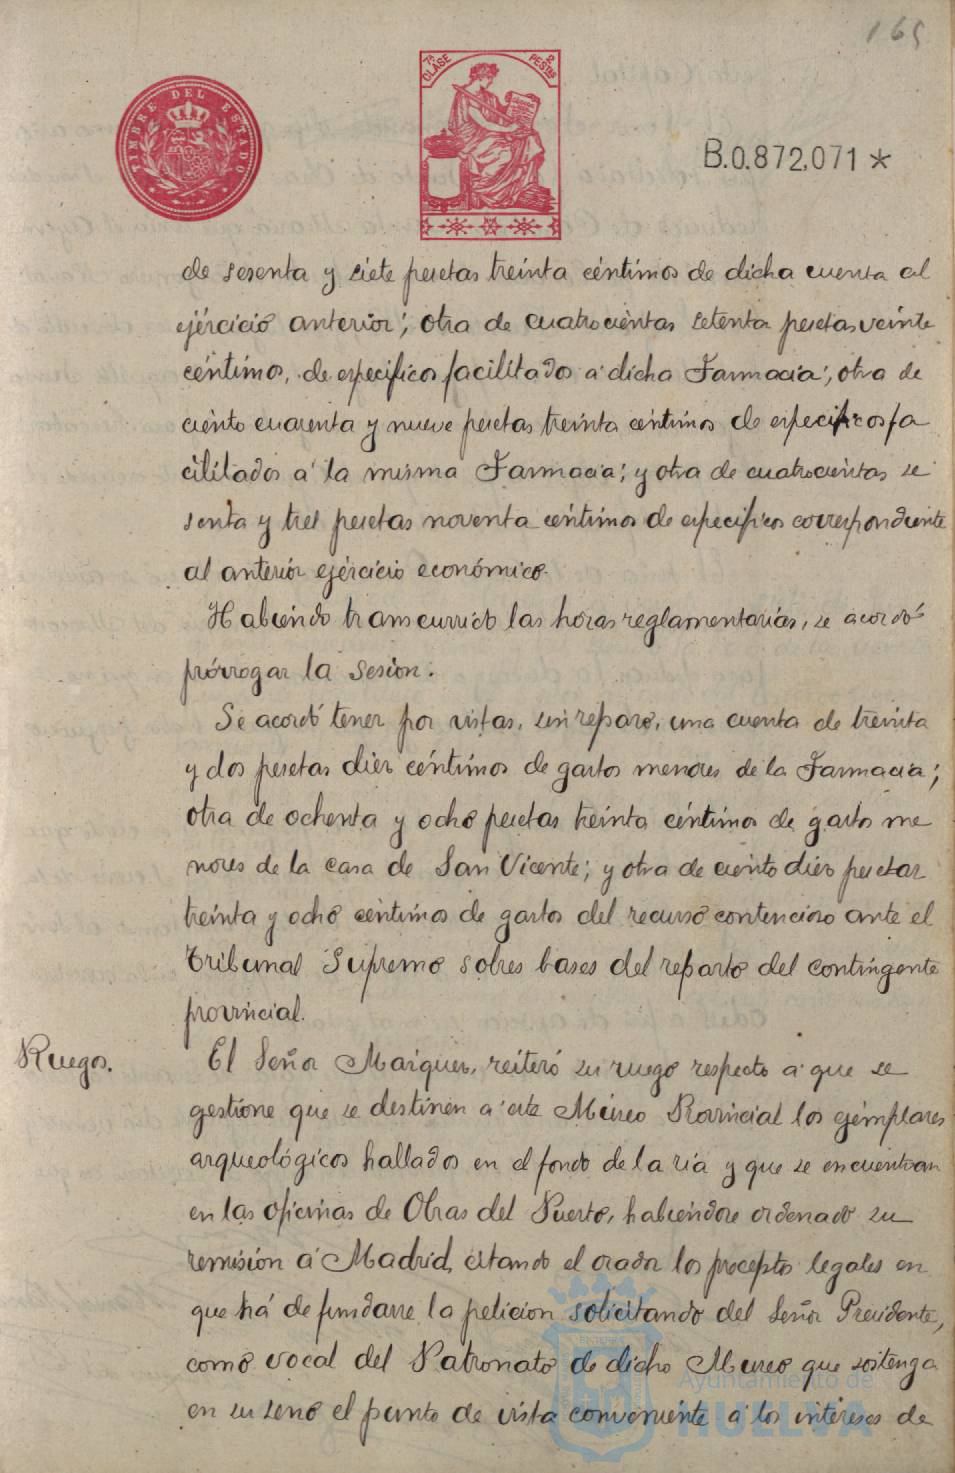 165
TIMBRE DEL ESTADO
7ª CLASE
2 PESTAS
B.0.872,071 *
de sesenta y siete pesetas treinta céntimos de dicha cuenta al
ejércicio anterior; otra de cuatrocientas setenta pesetas veinte
céntimos, de especificos facilitados a dicha Farmacia; otra de
ciento cuarenta y nueve pesetas treinta céntimos de especificos fa
cilitados a la misma Farmacia; y otra de cuatrocientas se
senta y tres pesetas noventa céntimos de especificos correspondiente
al anterior ejércicio económico.
Habiendo transcurrido las horas reglamentarias, se acordó
prórrogar la sesion.
Se acordó tener por vistas, sin reparo, una cuenta de treinta
y dos pesetas diez céntimos de gastos menores de la Farmacia;
otra de ochenta y ocho pesetas treinta céntimos de gastos me
nores de la casa de San Vicente; y otra de ciento diez pesetas
treinta y ocho céntimos de gastos del recurso contencioso ante el
Tribunal Supremo sobres bases del reparto del contingente
provincial.
Ruegos.
El Señor Marquez, reiteró su ruego respecto a que se
gestione que se destinen a este Museo Provincial los ejémplares
arqueológicos hallados en el fondo de la ria y que se encuentran
en las oficinas de Obras del Puerto, habiendose ordenado su
remisión a Madrid, citando el orador los preceptos legales en
que há de fundarse la peticion solicitando del Señor Presidente,
como vocal del Patronato de dicho Museo que sostenga
en su seno el punto de vista conveniente a los intereses de
Ayuntamiento de
HUELVA